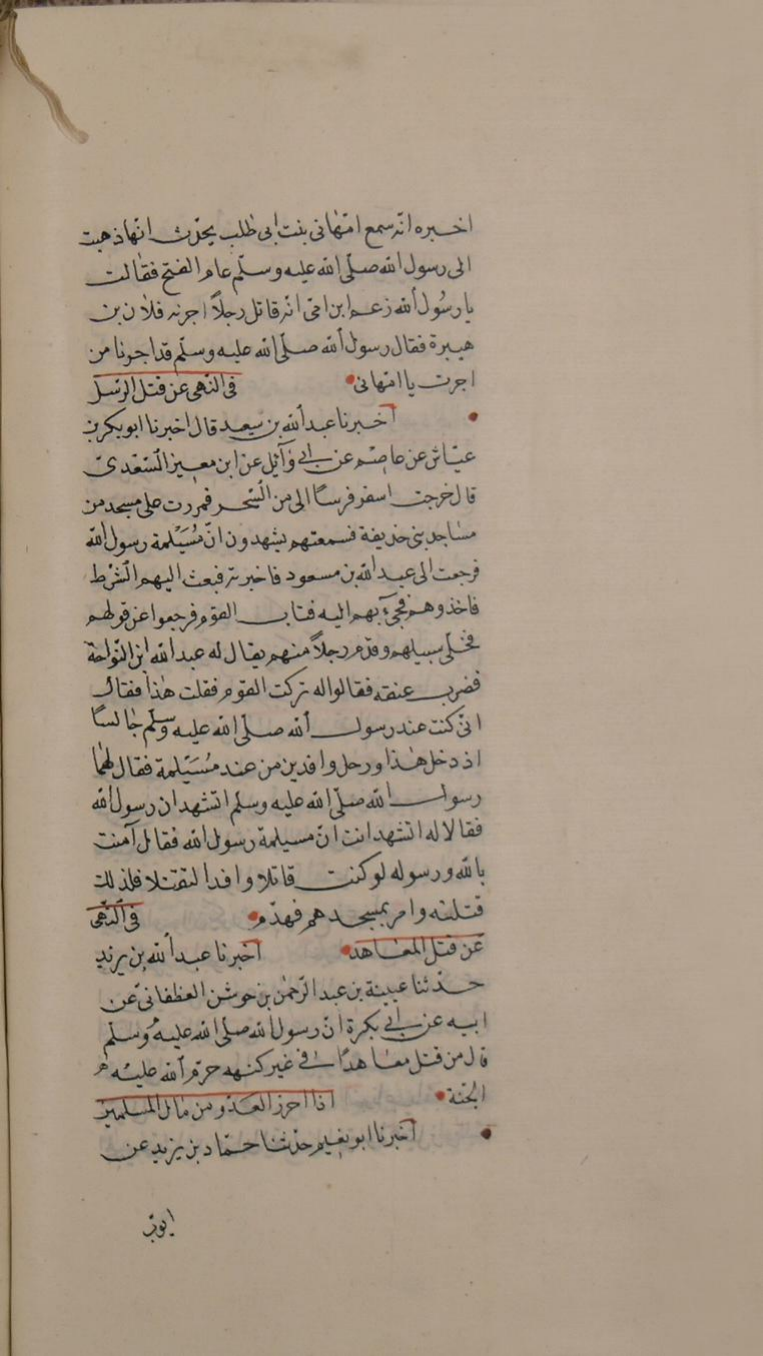 اخبره انّه سمع امّهانى بنت ابى طلب يحدّث انّها ذهبت
الى رسول الله صلّى الله عليه وسلّم عام الفتح فقالت
يا رسُول الله زعم ابن امّى انّه قاتل رجلاً اجرته فلان بن
هبيرة فقال رسول الله صلّى الله عليه وسلّم قد اجرنا من
اجرت يا امّهانى فى النّهى عن قتل الرّسل
أخبرنا عبد الله بن سعيد قال اخبرنا ابوبكر بن
عيّاش عن عاصم عن ابى وآئل عن ابن معيز السّعدى
قال خرجت اسفر فرسًا الى من السّحر فمررت على مسجد من
مساجد بنى حذيفة فسمعتهم يشهدون انّ مُسَيْلمة رسول الله
فرجعت الى عبد الله بن مسعود فاخبرته فبعث اليهم الشّرط
فاخذوهم فجىء بهم اليه فتاب القوم فرجعوا عن قولهم
فخلّى سبيلهم وقدّم رجلاً منهم يقال له عبد الله ابن النّواحة
فضرب عنقه فقالوا له تركت القوم فقلت هذا فقال
انّى كنت عند رسول الله صلّى الله عليه وسلّم جالسًا
اذ دخل هذا ورجل وافدين من عند مُسَيْلمة فقال لهما
رسول الله صلّى الله عليه وسلم اتشهد ان رسول الله
فقالا له اتشهد انت انّ مسيلمة رسول الله فقال آمنت
بالله ورسوله لو كنت قاتلا وافدا لقتلا فلذلك
قتلته وامر بمسجدهم فهدّم فى النّهى
عن قتل المعاهد أخبرنا عبد الله بن يزيد
حدّثنا عيينة بن عبد الرّحمٰن بن جوشن الغطفانىّ عن
ابيه عن ابى بكرة انّ رسول الله صلى الله عليه وسلم
قال من قتل معاهدًا فى غير كنهه حرّم الله عليه
الجنّة اذا احرز العدو من مال المسلمين
أخبرنا ابو نعيم حدّثنا حمّاد بن يزيد عن
ايّوب